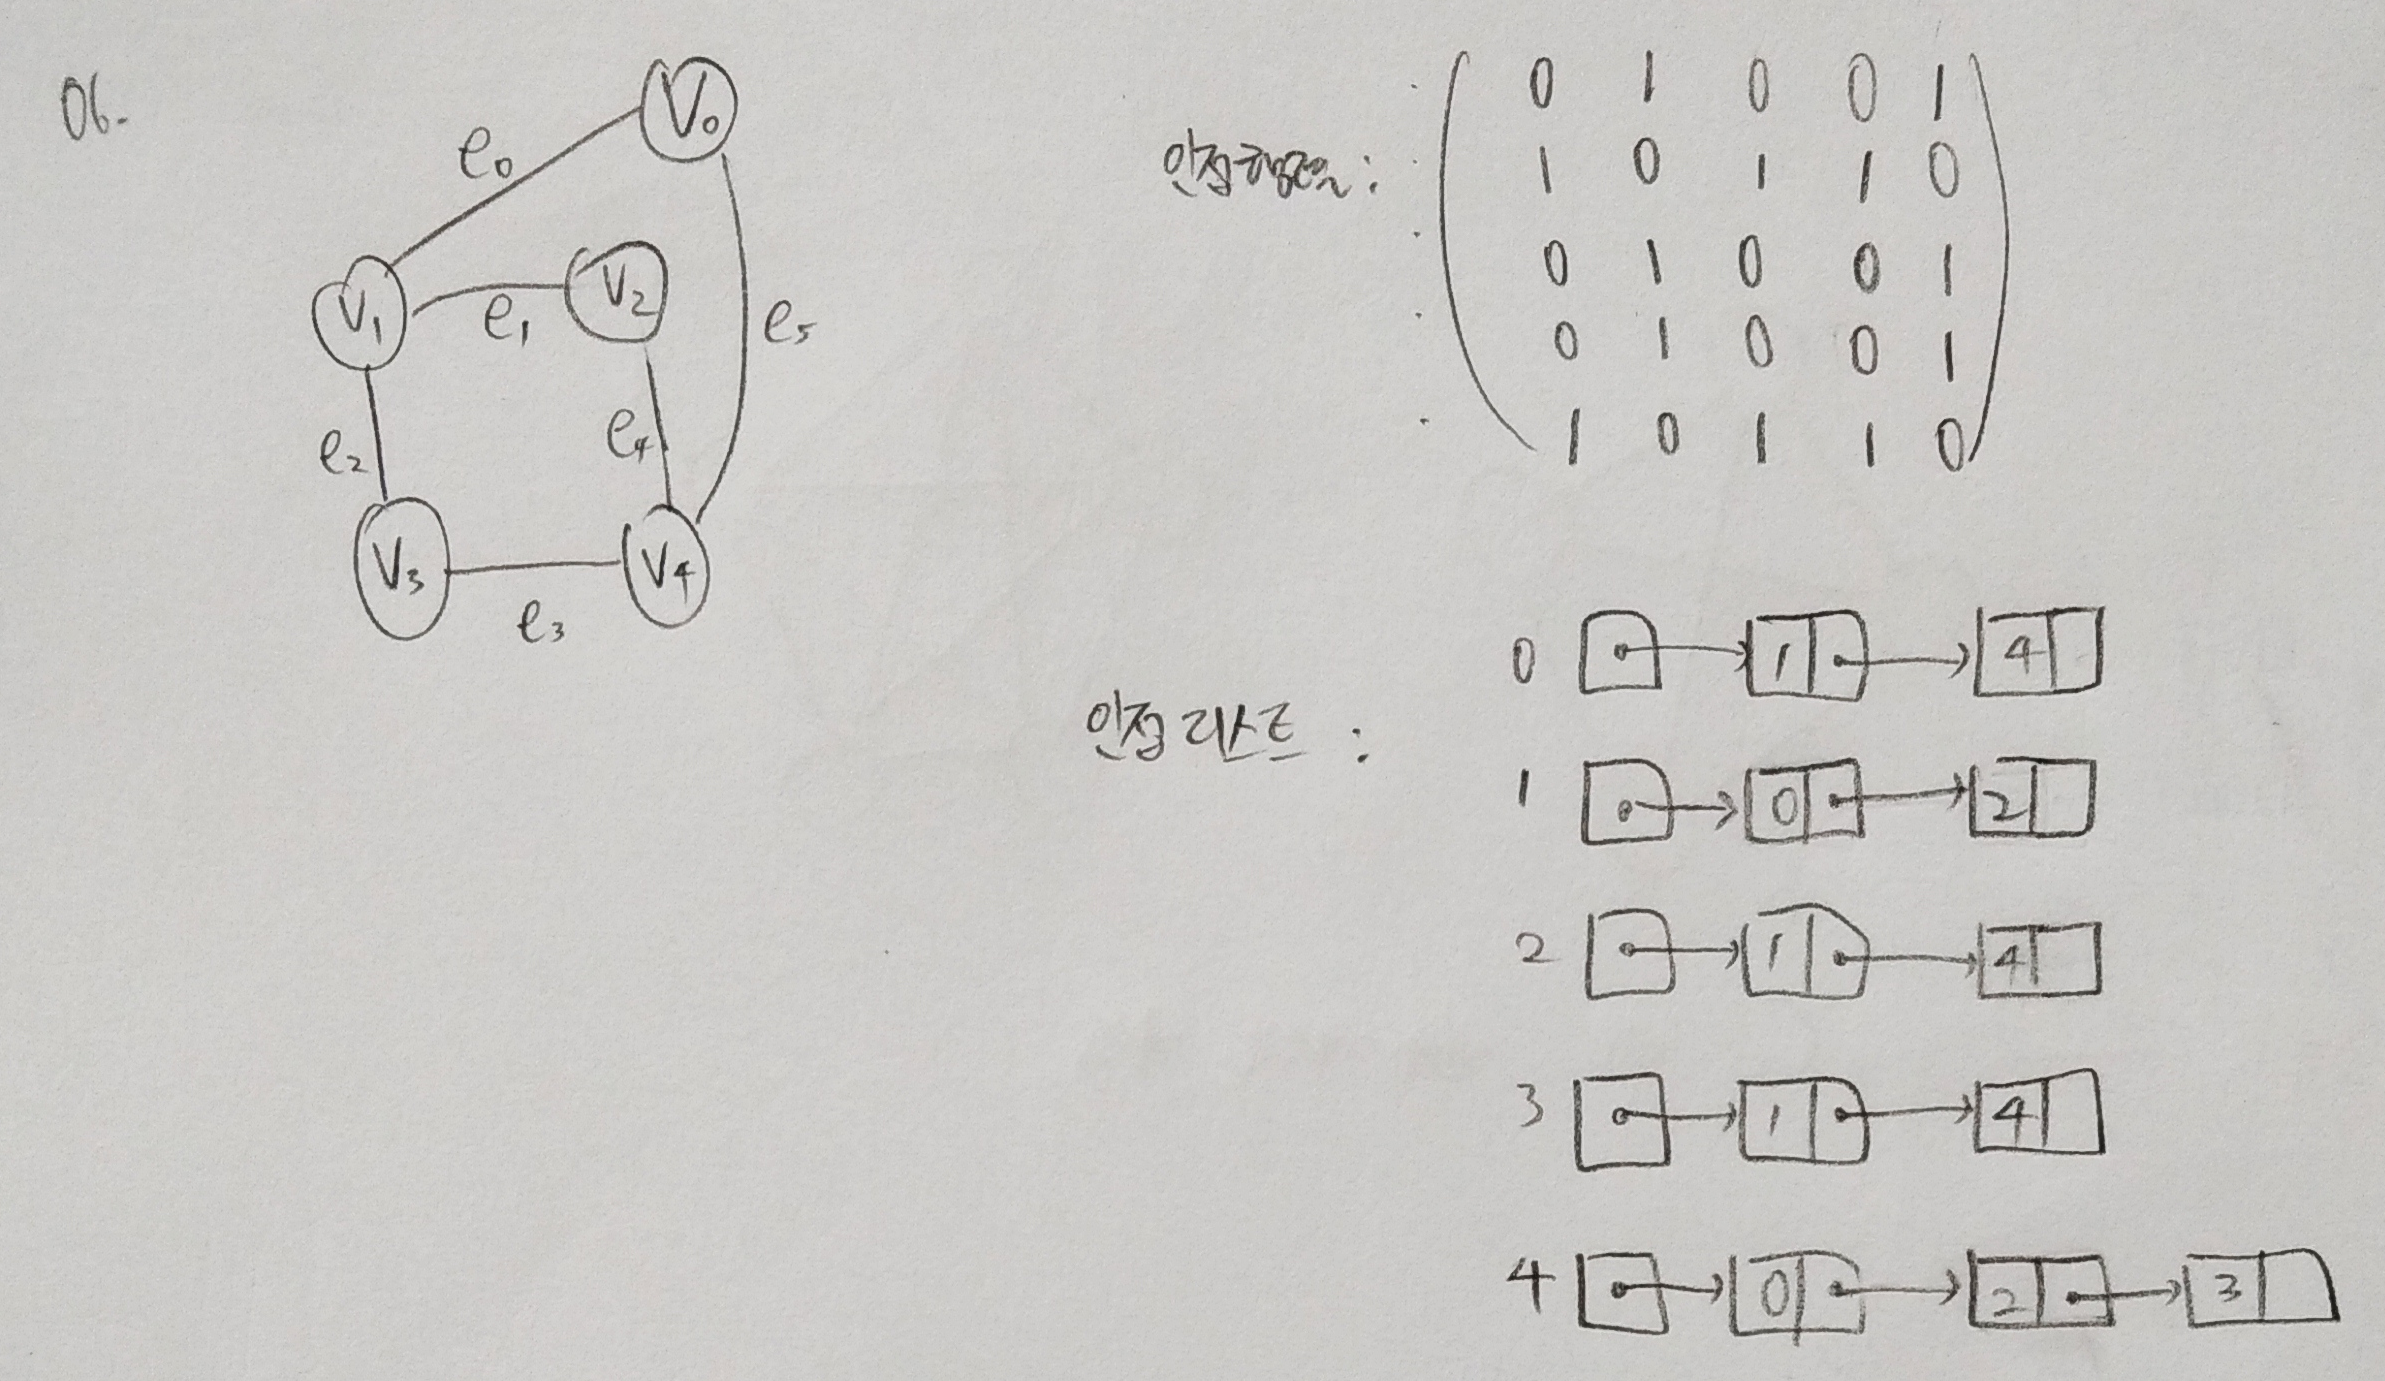 06.
V₀
e₀
V₁
e₁
V₂
e₅
e₂
e₄
V₃
e₃
V₄
인접행렬:
0 1 0 0 1
1 0 1 1 0
0 1 0 0 1
0 1 0 0 1
1 0 1 1 0
인접 리스트 :
0 1 4
1 0 2
2 1 4
3 1 4
4 0 2 3